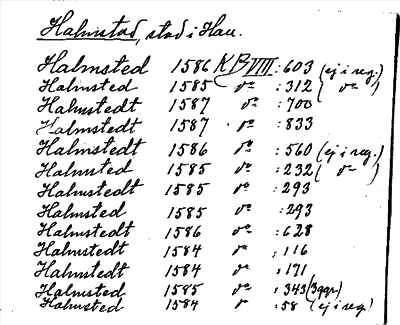 Halmstad, stad i Hall.
Halmsted 1586 KB VIII :603 (ej i reg.)
Halmsted 1585 do :312 ( do )
Halmstedt 1587 do :700
Halmstedt 1587 do :833
Halmstedt 1586 do :560 (ej i reg.)
Halmsted 1585 do :232 ( do )
Halmstedt 1585 do :293
Halmsted 1585 do :293
Halmstedt 1586 do :628
Halmstedt 1584 do :116
Halmstedt 1584 do :171
Halmstedt 1585 do :343 (3 ggr)
Halmsted 1584 do :58 (ej i reg)